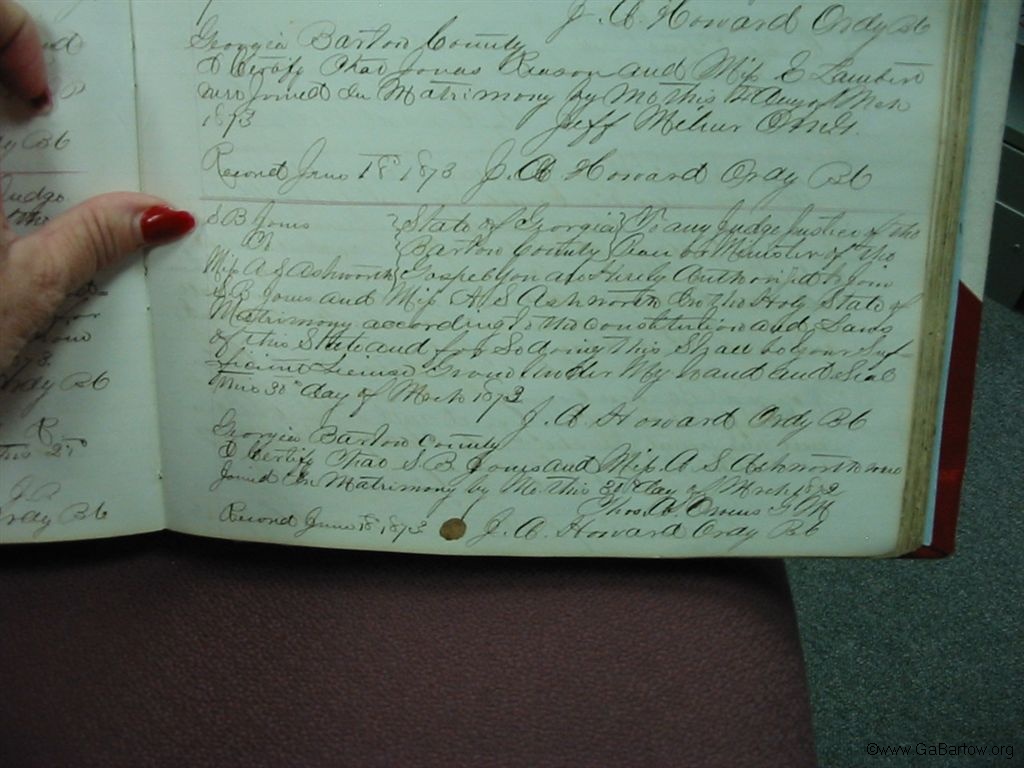 J. A. Howard Ordy BC
Georgia Bartow County
I Certify that Jonas Reason and Miss E Lambert
were Joined In Matrimony by Me this day of Mch
1873
Jeff Milner
Record June 18th 1873 J. A. Howard Ordy BC
S B Jones
&
Miss A S Ashworth
State of Georgia
Bartow County
To any Judge Justice of the
Peace or Minister of the
Gospel You are Hereby Authorised to Join
S. B. Jones and Miss A. S Ashworth In the Holy State of
Matrimony according to the Constitution and Laws
of this State and for So doing this Shall be Your Suf-
ficient License Given under My hand and Seal
this 30th day of Mch 1873
J. A Howard Ordy BC
Georgia Bartow County
I Certify that S. B. Jones and Miss A S Ashworth were
Joined In Matrimony by Me this 30 day of Mch 1873
Thos. A.
Record June 18, 1873 J. A. Howard Ordy BC
Judge
the
1873
Ordy BC
this 27
J. A
Ordy BC
©www.GaBartow.org